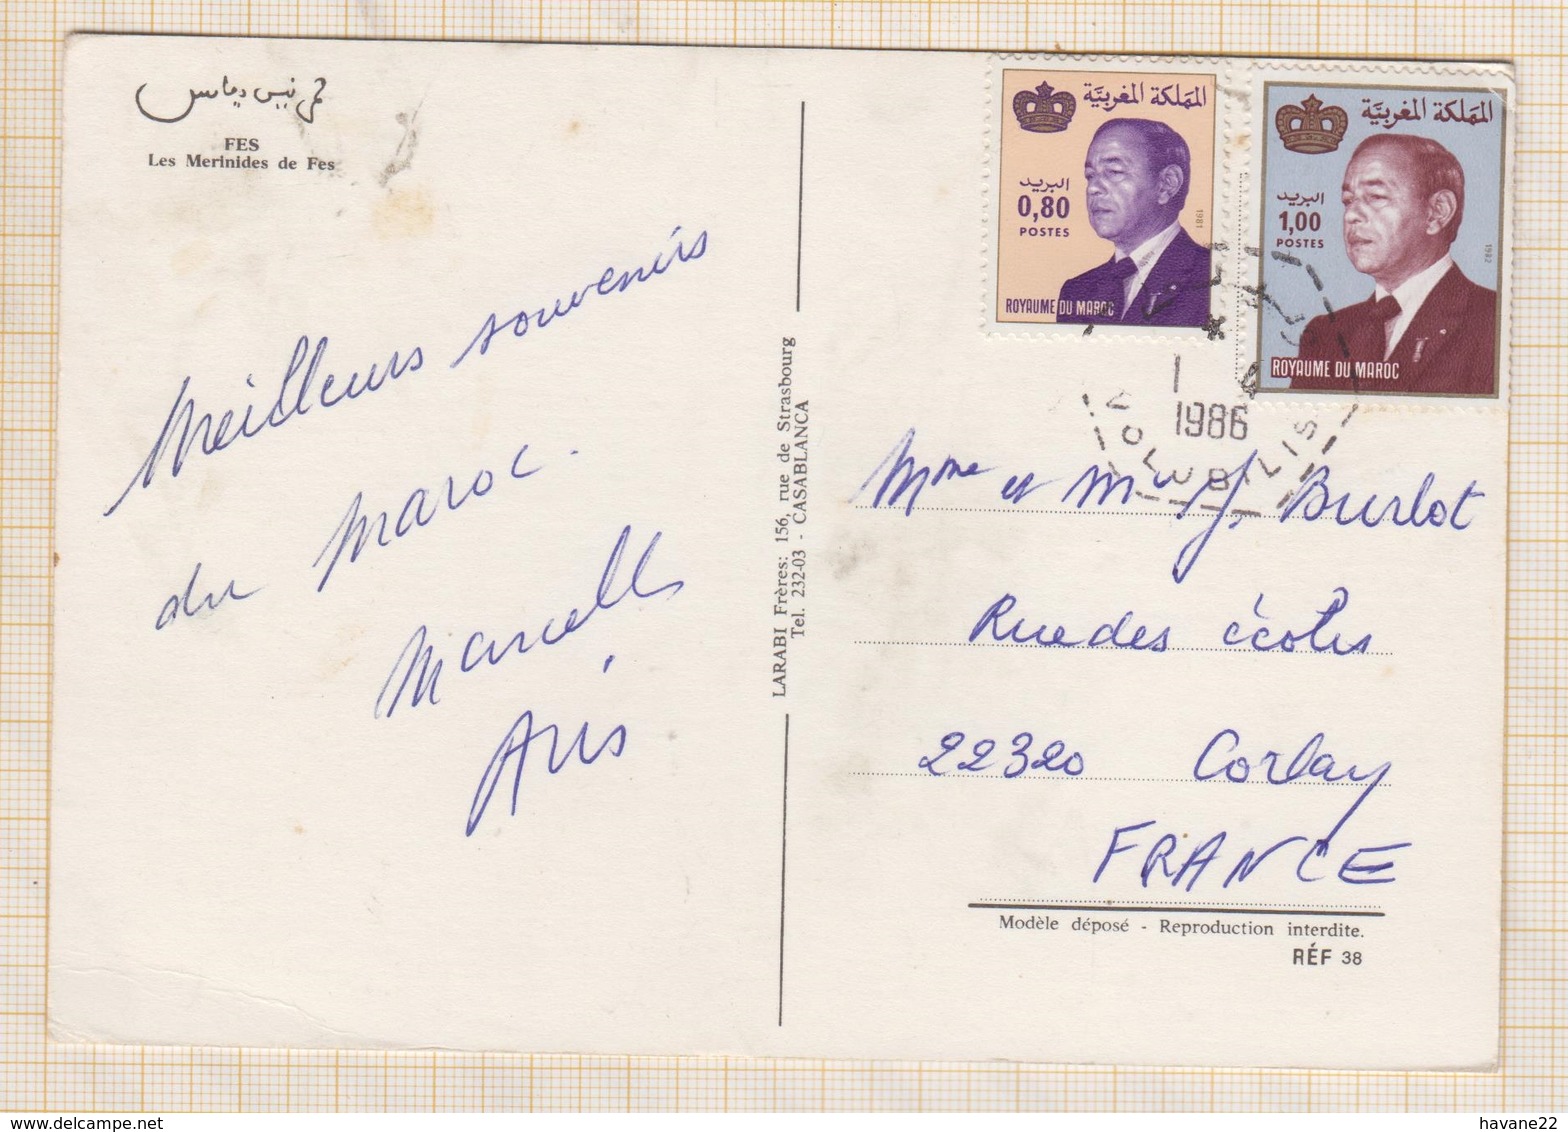 FES
Les Merinides de Fes
Meilleurs souvenirs
du Maroc.
Marcelle
Aris
LARABI Frères: 156, rue de Strasbourg
Tel. 232-03 - CASABLANCA
المملكة المغربية
البريد
0,80
POSTES
1981
ROYAUME DU MAROC
المملكة المغربية
البريد
1,00
POSTES
1982
ROYAUME DU MAROC
1986
VOLUBILIS
Mme et Mr J. Burlot
Rue des écoles
22320 Corlay
FRANCE
Modèle déposé - Reproduction interdite.
RÉF 38
havane22